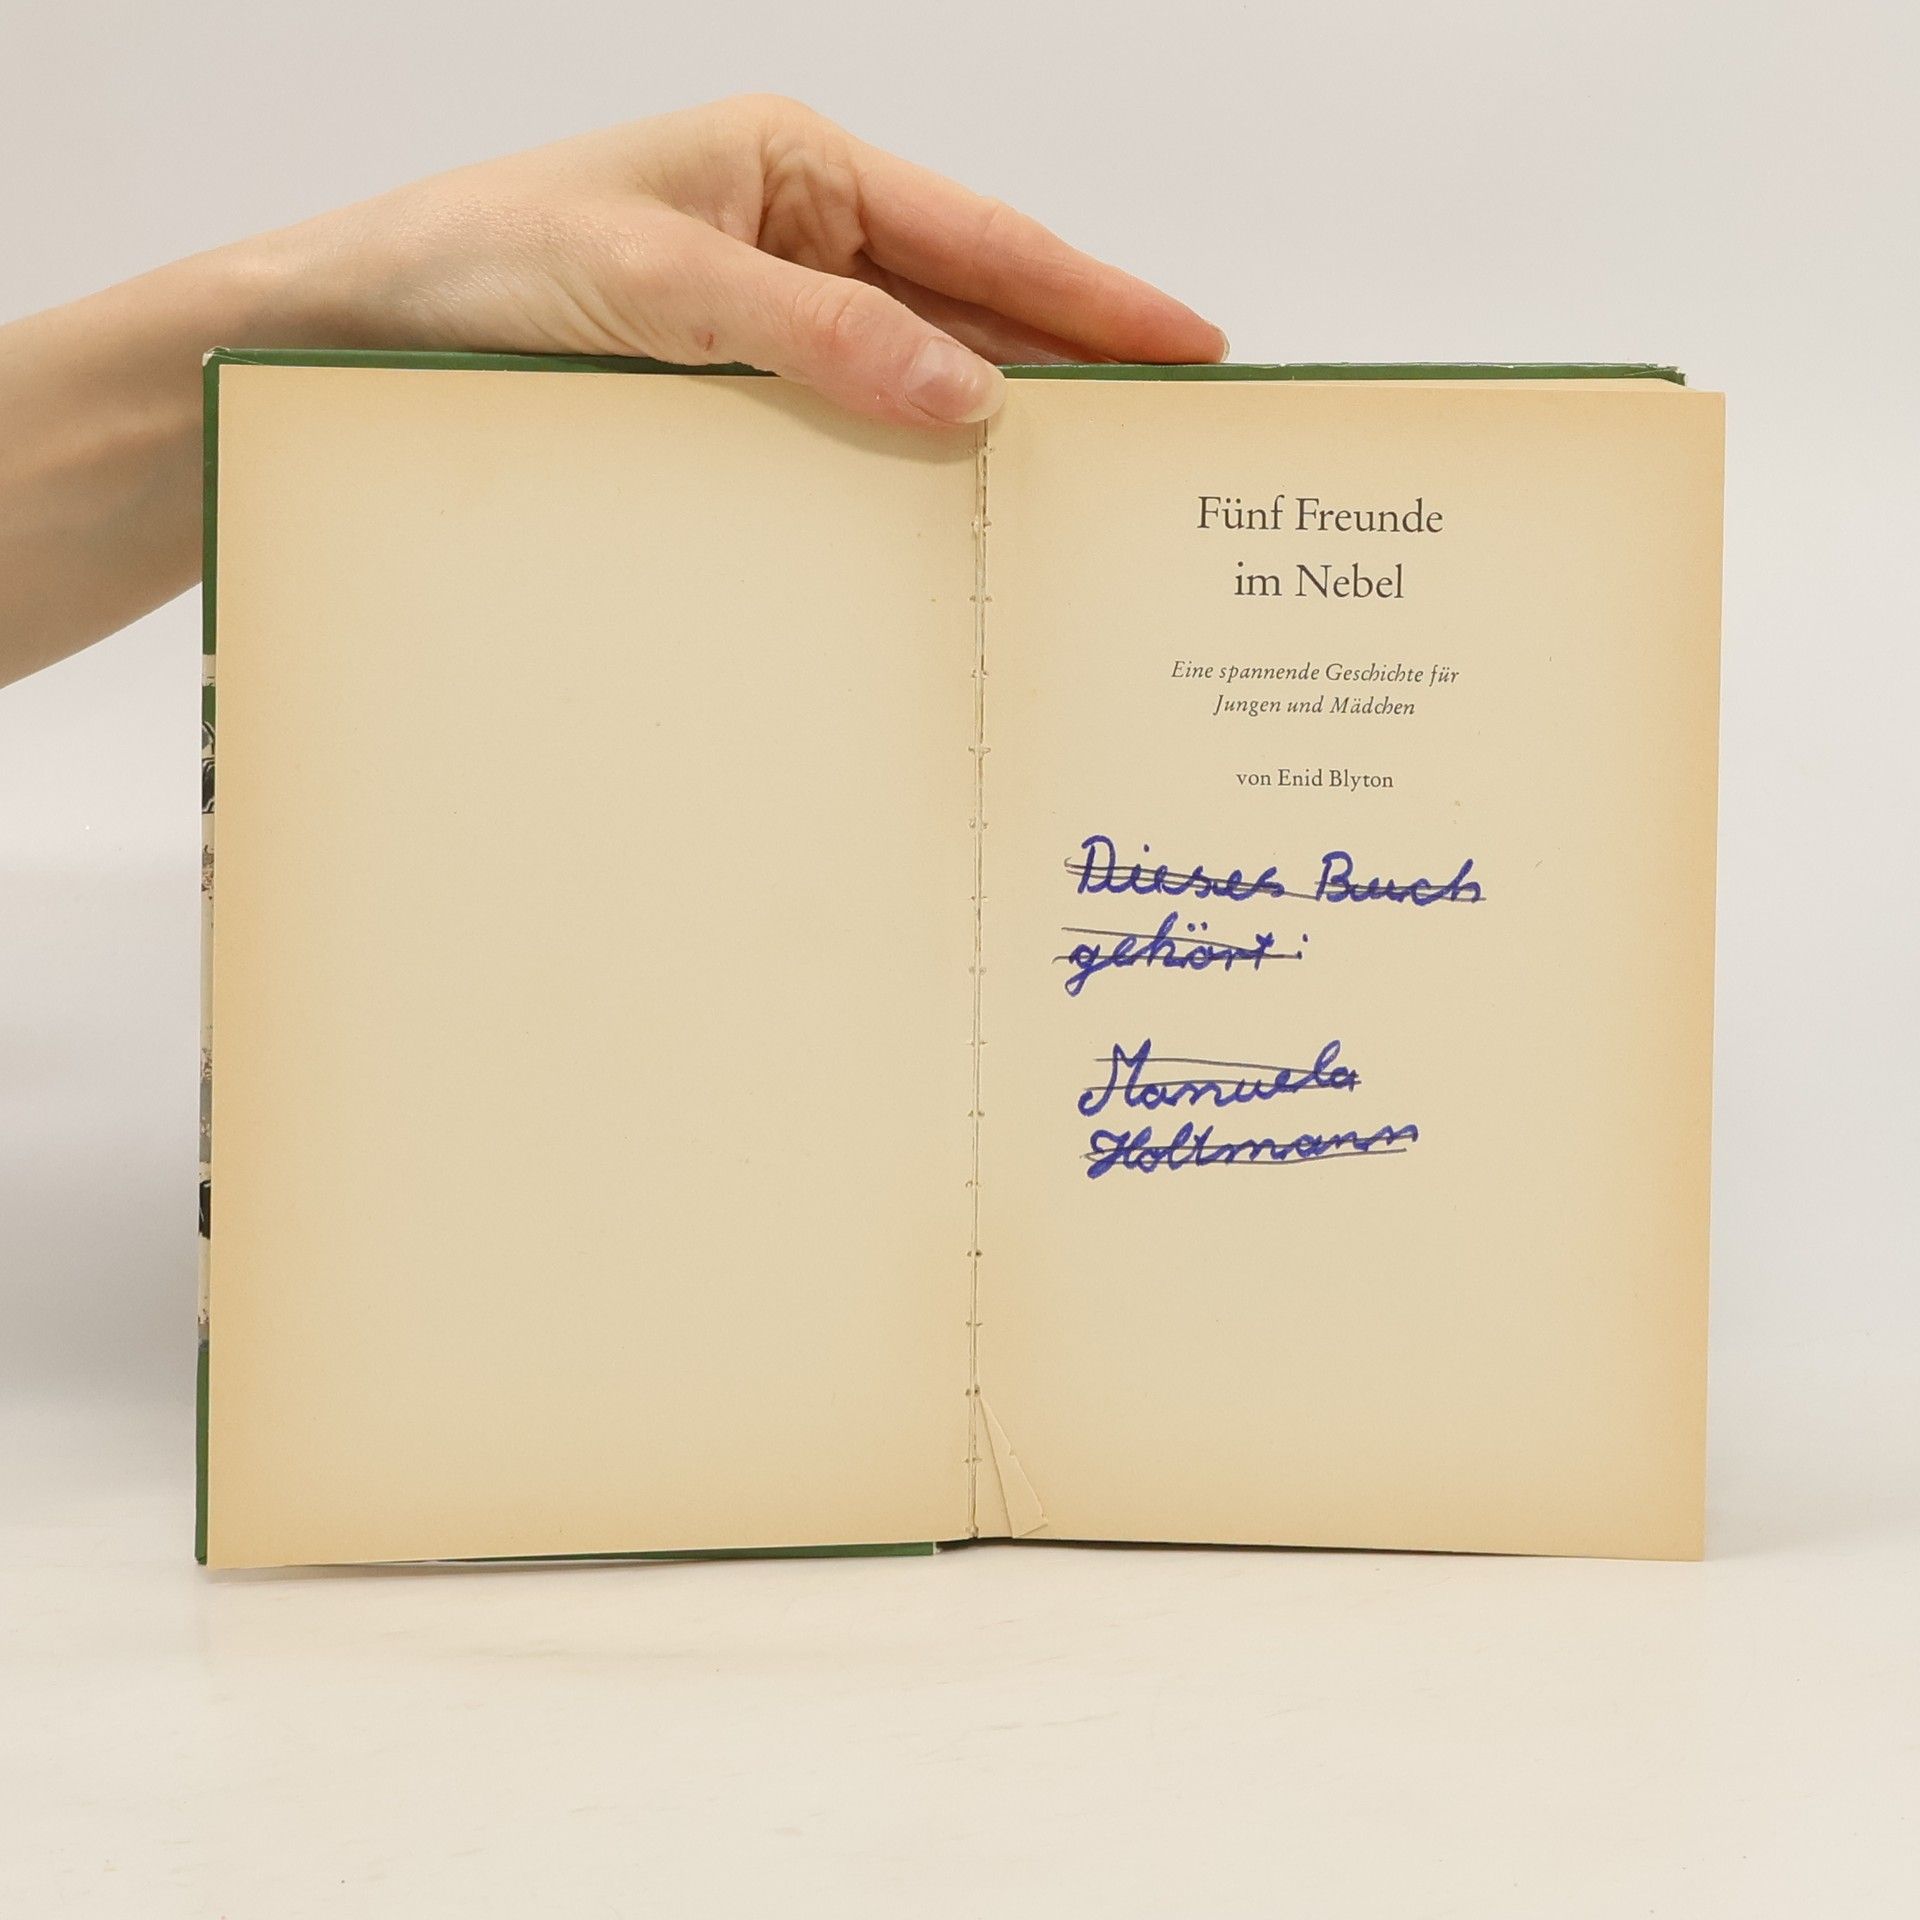 Fünf Freunde
im Nebel
Eine spannende Geschichte für
Jungen und Mädchen
von Enid Blyton
Dieses Buch
gehört:
Manuela
Holtmann